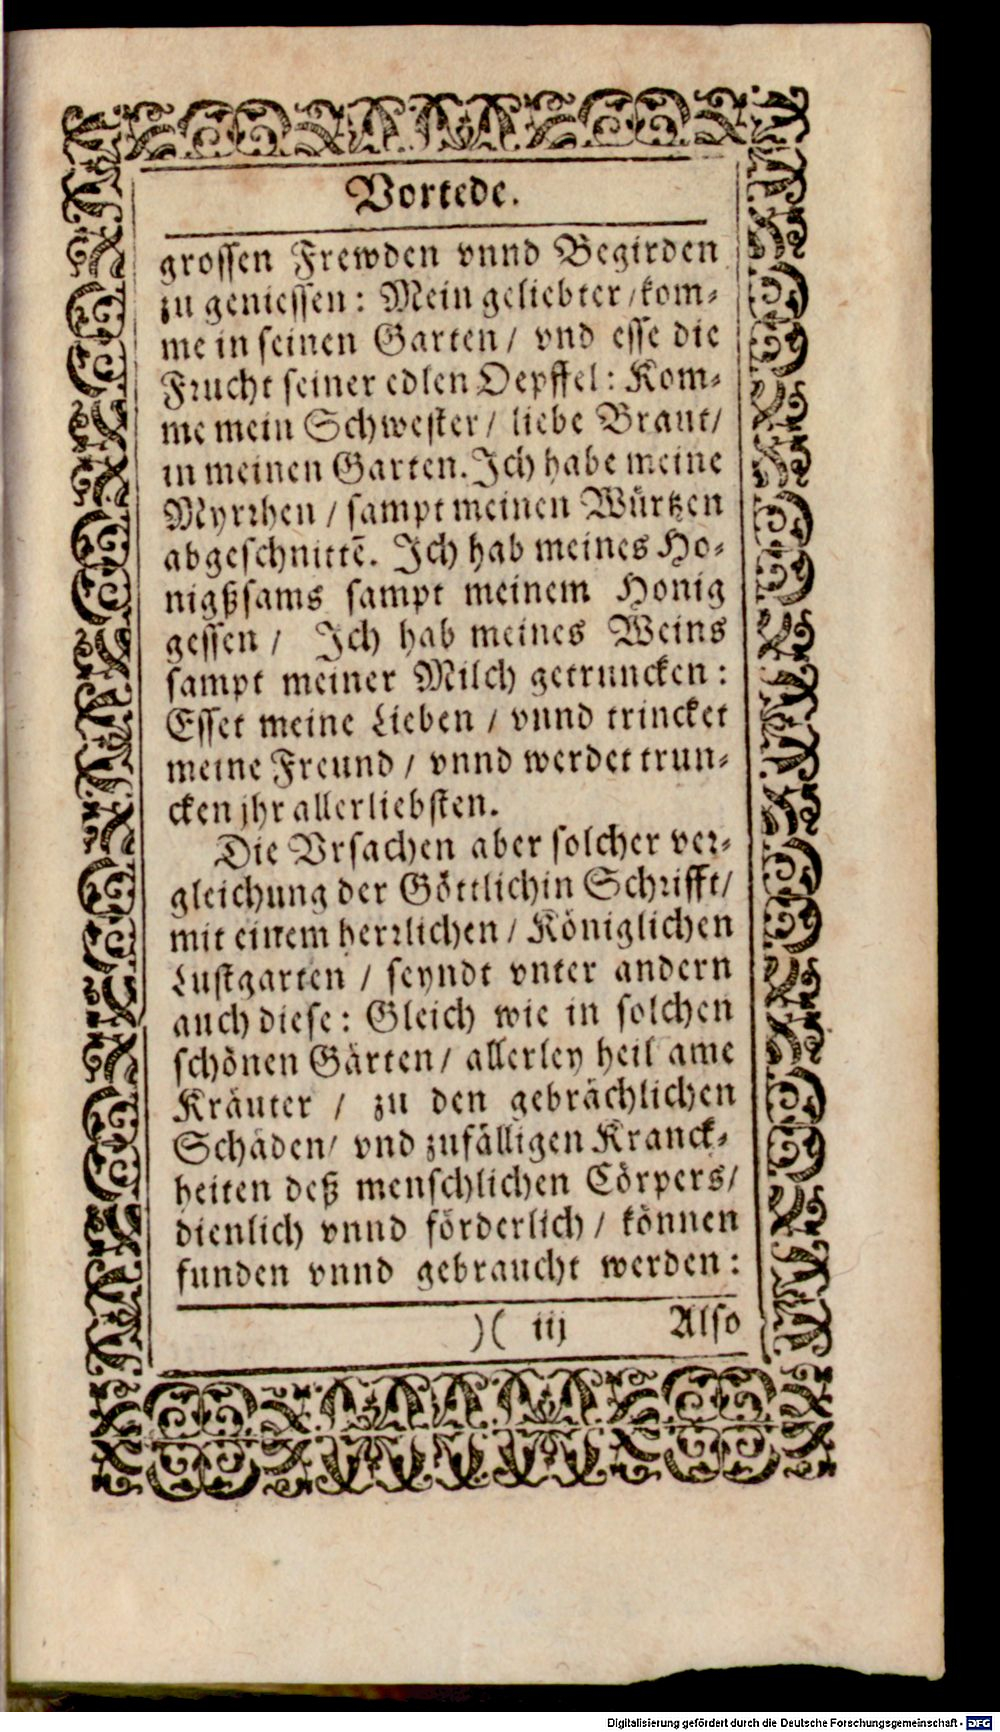 Vorrede.
grossen Frewden vnnd Begirden
zu geniessen: Mein geliebter/kom-
me in seinen Garten/ vnd esse die
Frucht seiner edlen Oepffel: Kom-
me mein Schwester/ liebe Braut/
in meinen Garten. Ich habe meine
Myrrhen/ sampt meinen Würtzen
abgeschnittē. Ich hab meines Ho-
nigßsams sampt meinem Honig
gessen/ Ich hab meines Weins
sampt meiner Milch getruncken:
Esset meine Lieben/ vnnd trincket
meine Freund/ vnnd werdet trun-
cken jhr allerliebsten.
Die Vrsachen aber solcher ver-
gleichung der Göttlichin Schrifft/
mit einem herrlichen/ Königlichen
Lustgarten/ seyndt vnter andern
auch diese: Gleich wie in solchen
schönen Gärten/ allerley heil ame
Kräuter/ zu den gebrächlichen
Schäden/ vnd zufälligen Kranck-
heiten deß menschlichen Cörpers/
dienlich vnnd förderlich/ können
funden vnnd gebraucht werden:
)( iij Also
Digitalisierung gefördert durch die Deutsche Forschungsgemeinschaft - DFG